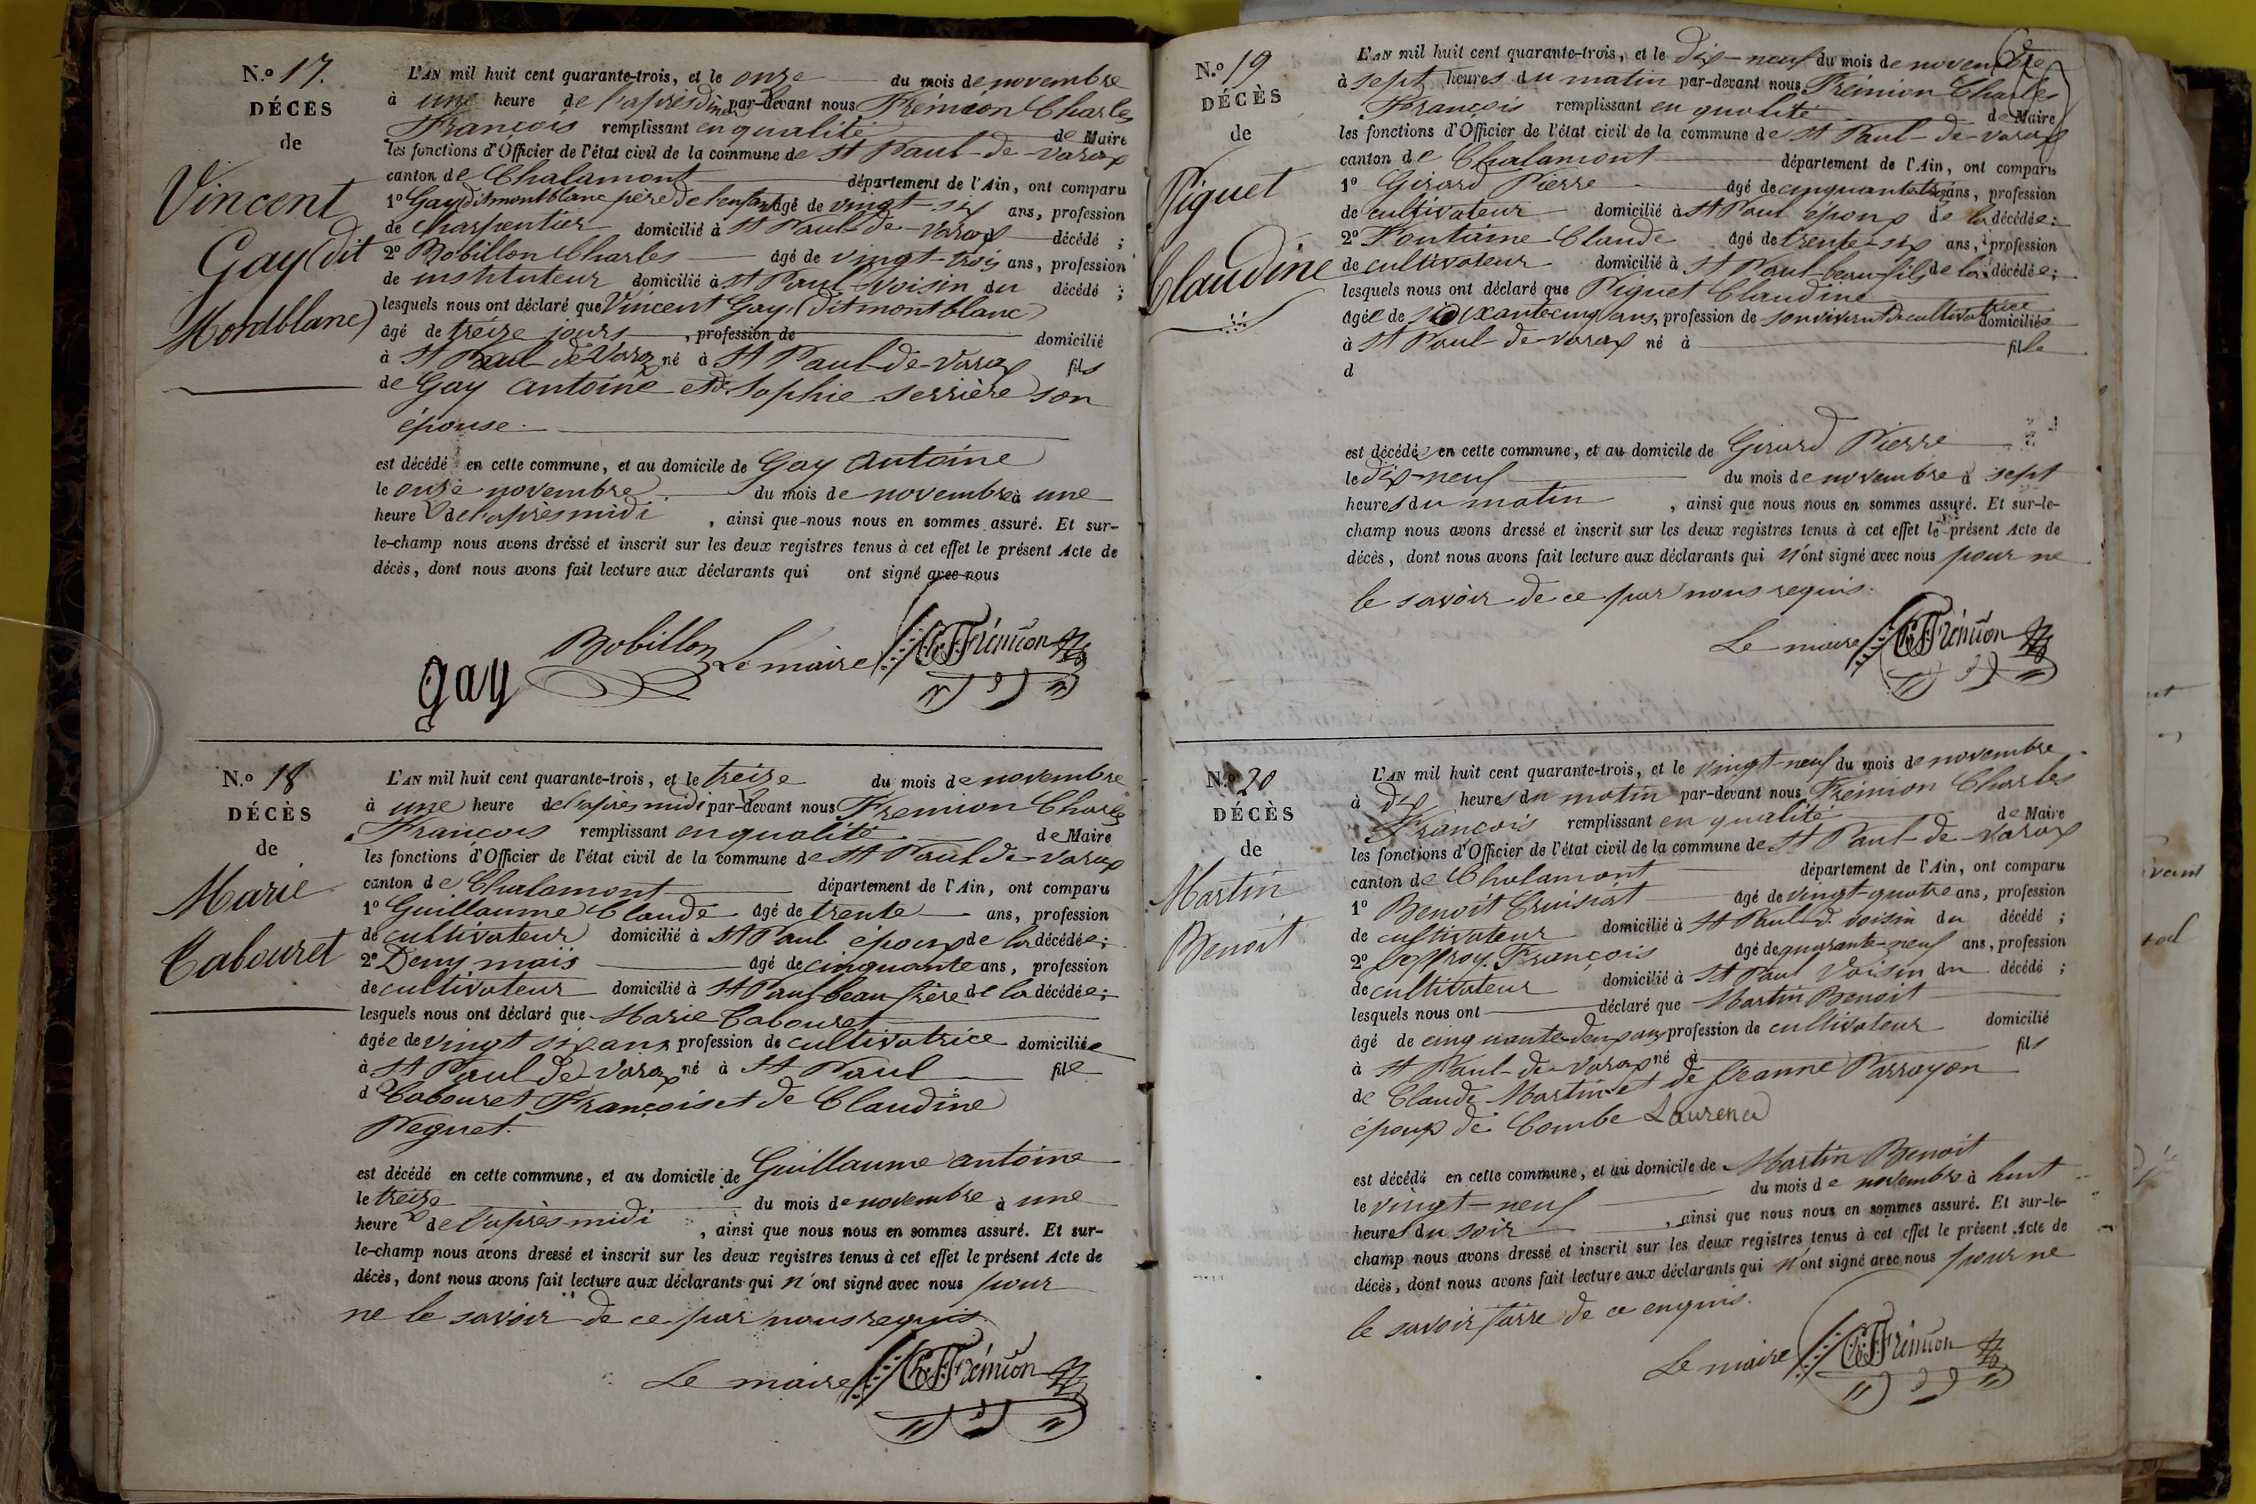 N.º 17.
DÉCÈS
de
Vincent
Gay (dit
Montblanc)
L'AN mil huit cent quarante-trois, et le onze du mois de novembre
à une heure de l'après diner par-devant nous Frémion Charles
François remplissant en qualité de Maire
les fonctions d'Officier de l'état civil de la commune de St Paul-de-Varax
canton de Chalamont département de l'Ain, ont comparu
1º Gay dit montblanc père de l'enfant âgé de vingt-six ans, profession
de charpentier domicilié à St Paul-de-Varax décédé ;
2º Bobillon Charles âgé de vingt-trois ans, profession
de instituteur domicilié à St Paul voisin du décédé ;
lesquels nous ont déclaré que Vincent Gay (dit montblanc)
âgé de treize jours, profession de domicilié
à St Paul de Varax né à St Paul-de-Varax fils
de Gay antoine et de Sophie Serrière son
épouse.
est décédé en cette commune, et au domicile de Gay Antoine
le onze novembre du mois de novembre à une
heure de l'après midi, ainsi que nous nous en sommes assuré. Et sur-
le-champ nous avons dressé et inscrit sur les deux registres tenus à cet effet le présent Acte de
décès, dont nous avons fait lecture aux déclarants qui ont signé avec nous
gay Bobillon Le maire Ch F Frémion
N.º 18
DÉCÈS
de
Marie
Cabouret
L'AN mil huit cent quarante-trois, et le treize du mois de novembre
à une heure de l'après midi par-devant nous Fremion Charles
François remplissant en qualité de Maire
les fonctions d'Officier de l'état civil de la commune de St Paul de-Varax
canton de Chalamont département de l'Ain, ont comparu
1º Guillaume Claude âgé de trente ans, profession
de cultivateur domicilié à St Paul époux de la décédée ;
2º Deny mais âgé de cinquante ans, profession
de cultivateur domicilié à St Paul beau frère de la décédée ;
lesquels nous ont déclaré que Marie Cabouret
âgée de vingt six ans, profession de cultivatrice domiciliée
à St Paul de Varax né à St Paul fille
d Cabouret François et de Claudine
Peguet.
est décédé en cette commune, et au domicile de Guillaume antoine
le treize du mois de novembre à une
heure de l'après midi, ainsi que nous nous en sommes assuré. Et sur-
le-champ nous avons dressé et inscrit sur les deux registres tenus à cet effet le présent Acte de
décès, dont nous avons fait lecture aux déclarants qui n'ont signé avec nous pour
ne le savoir de ce par nous requis.
Le maire Ch F Frémion
N.º 19
DÉCÈS
de
Piguet
Claudine
L'AN mil huit cent quarante-trois, et le dix-neuf du mois de novembre
à sept heures du matin par-devant nous Frémion Charles
François remplissant en qualité de Maire
les fonctions d'Officier de l'état civil de la commune de St Paul-de-Varax
canton de Chalamont département de l'Ain, ont comparu
1º Girard Pierre âgé de cinquante ans, profession
de cultivateur domicilié à St Paul époux de la décédée ;
2º Fontaine Claude âgé de trente-six ans, profession
de cultivateur domicilié à St Paul beau fils de la décédée ;
lesquels nous ont déclaré que Piguet Claudine
âgée de soixante cinq ans, profession de son vivant de cultivatrice domiciliée
à St Paul-de-Varax né à fille
d
est décédée en cette commune, et au domicile de Girard Pierre
le dix-neuf du mois de novembre à sept
heures du matin, ainsi que nous nous en sommes assuré. Et sur-le-
champ nous avons dressé et inscrit sur les deux registres tenus à cet effet le présent Acte de
décès, dont nous avons fait lecture aux déclarants qui n'ont signé avec nous pour ne
le savoir de ce par nous requis.
Le maire Ch F Frémion
N.º 20
DÉCÈS
de
Martin
Benoit
L'AN mil huit cent quarante-trois, et le vingt-neuf du mois de novembre
à dix heures du matin par-devant nous Frémion Charles
François remplissant en qualité de Maire
les fonctions d'Officier de l'état civil de la commune de St Paul-de-Varax
canton de Chalamont département de l'Ain, ont comparu
1º Benoit Cruisiat âgé de vingt-quatre ans, profession
de cultivateur domicilié à St Paul d. voisin du décédé ;
2º Joffroy François âgé de quarante-neuf ans, profession
de cultivateur domicilié à St Paul voisin du décédé ;
lesquels nous ont déclaré que Martin Benoit
âgé de cinquante-deux ans profession de cultivateur domicilié
à St Paul-de-Varax né à fils
de Claude Martin et de Jeanne Parrayon
époux de Combe Laurence
est décédé en cette commune, et au domicile de Martin Benoit
le vingt-neuf du mois de novembre à huit
heures du soir, ainsi que nous nous en sommes assuré. Et sur-le-
champ nous avons dressé et inscrit sur les deux registres tenus à cet effet le présent Acte de
décès, dont nous avons fait lecture aux déclarants qui n'ont signé avec nous pour ne
le savoir faire de ce enquis.
Le maire Ch F Frémion